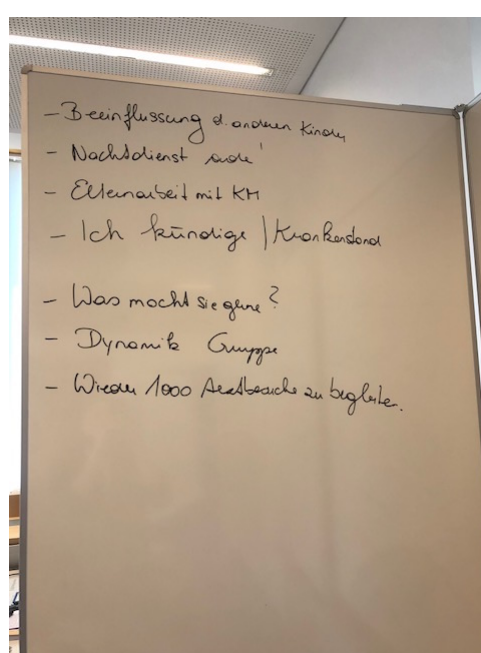 - Beeinflussung d. anderen Kinder
- Nachtdienst
- Elternarbeit mit KM
- Ich kündige / Krankenstand
- Was macht sie gerne?
- Dynamik Gruppe
- Wieder 1000 Arztbesuche zu begleiten.